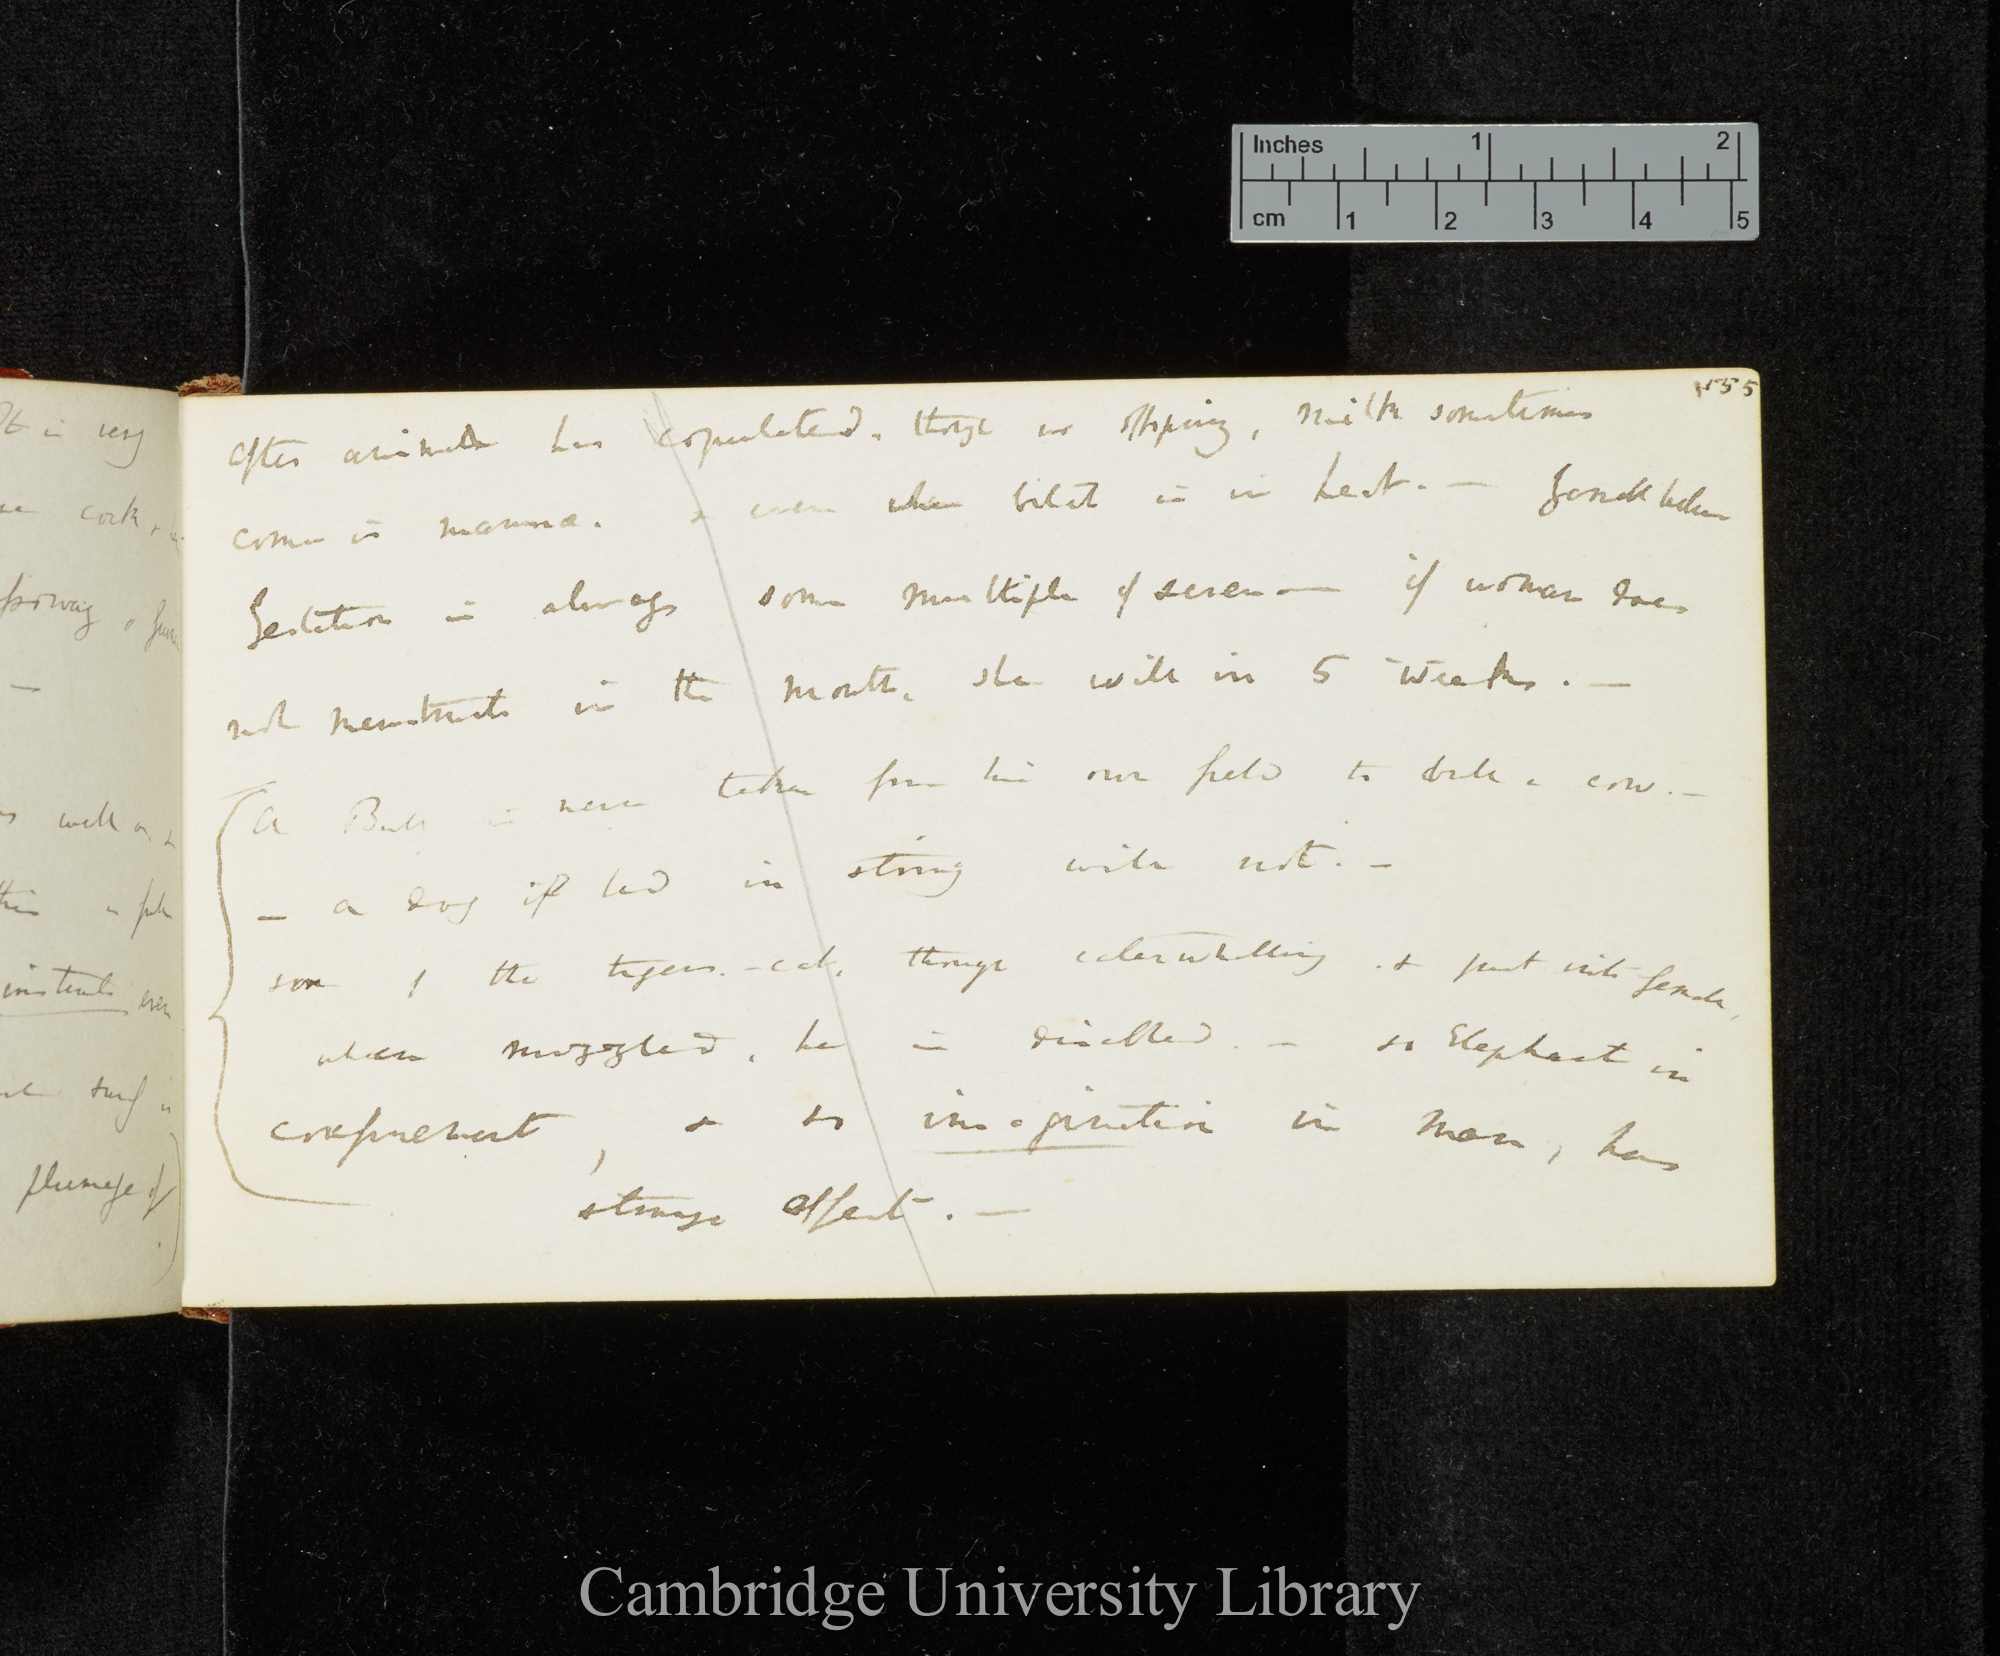 155
after animals has copulated, though no offspring, milk sometimes
comes in mammæ. & even when bitch is in heat. —
Gestation is always some multiple of seven — if woman does
not menstruate in the month, she will in 5 weeks. —
A Bull is never taken from his own field to bull a cow. —
— a dog if led in string will not. —
son of the tigers-cat, though caterwhalling & put into female,
when muzzled, he is disabled. — so Elephant in
confinement, & so imagination in man, has
strange effect. —
It is very
cock &
well as
this is
instincts even
plumage of
Inches 1 2
cm 1 2 3 4 5
Cambridge University Library